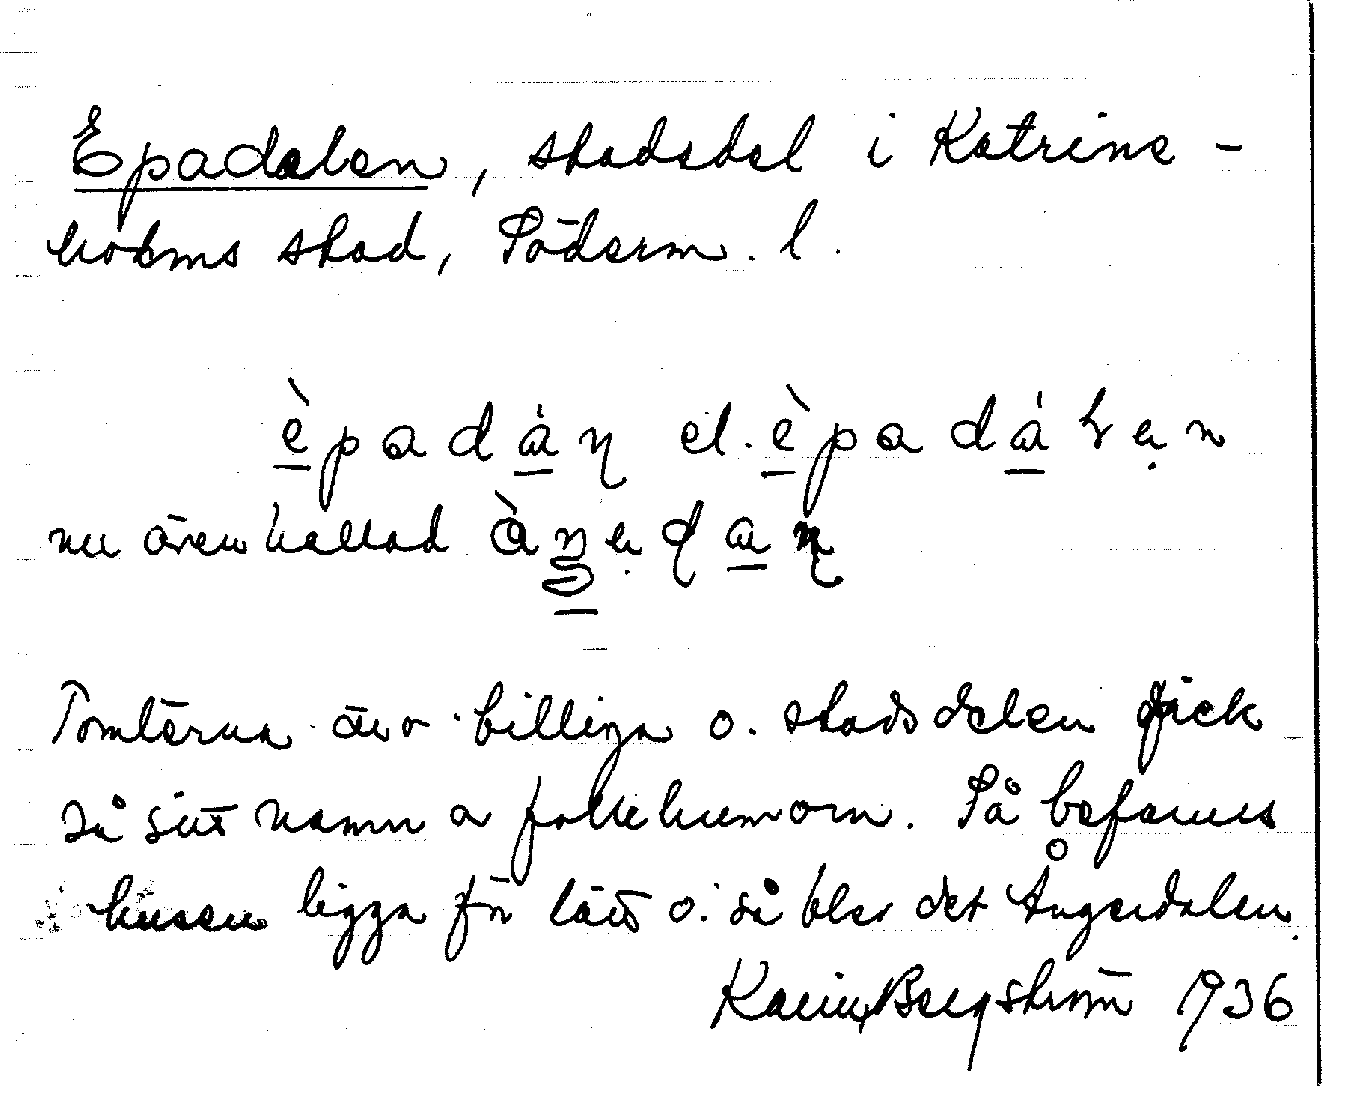 Epadalen, stadsdel i Katrine-
holms stad, Söderm. l.
èpadáṇ el. èpadálen
nu även kallad
Tomterna äro billiga o. stadsdelen fick
så sitt namn a folkhumorn. Så befanns
husen ligga för lätt o. så blev det Ångerdalen.
Karin Bergström 1936